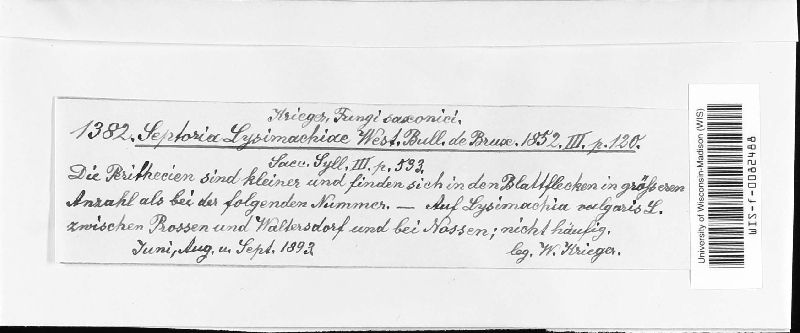 Krieger, Fungi saxonici.
1382. Septoria Lysimachiae West. Bull. de Brux. 1852. III. p. 120.
Sacc. Syll. III. p. 533.
Die Perithecien sind kleiner und finden sich in den Blattflecken in grösseren
Anzahl als bei der folgenden Nummer. — Auf Lysimachia vulgaris L.
zwischen Prossen und Waltersdorf und bei Nossen; nicht häufig.
Juni, Aug. u. Sept. 1893. leg. W. Krieger.
University of Wisconsin-Madison (WIS)
WIS-f-0062488